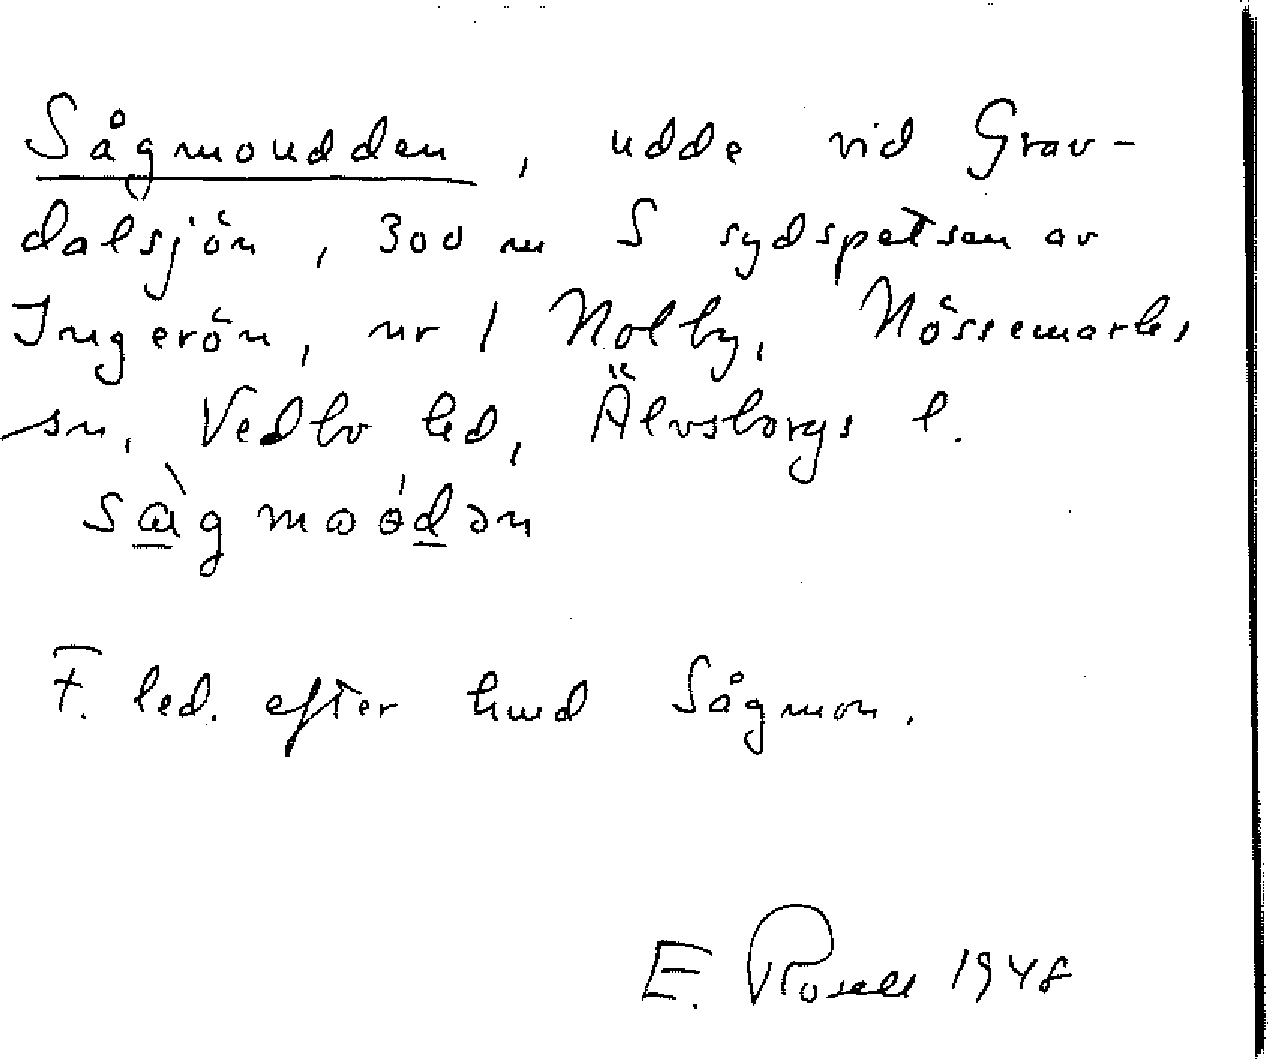 Sågmoudden, udde vid Grav-
dalsjön, 300 m S sydspetsen av
Ingerön, nr 1 Nolby, Nössemarks
sn, Vedbo hd, Älvsborgs l.
F. led. efter hmd Sågmon.
E. Rosell 1948